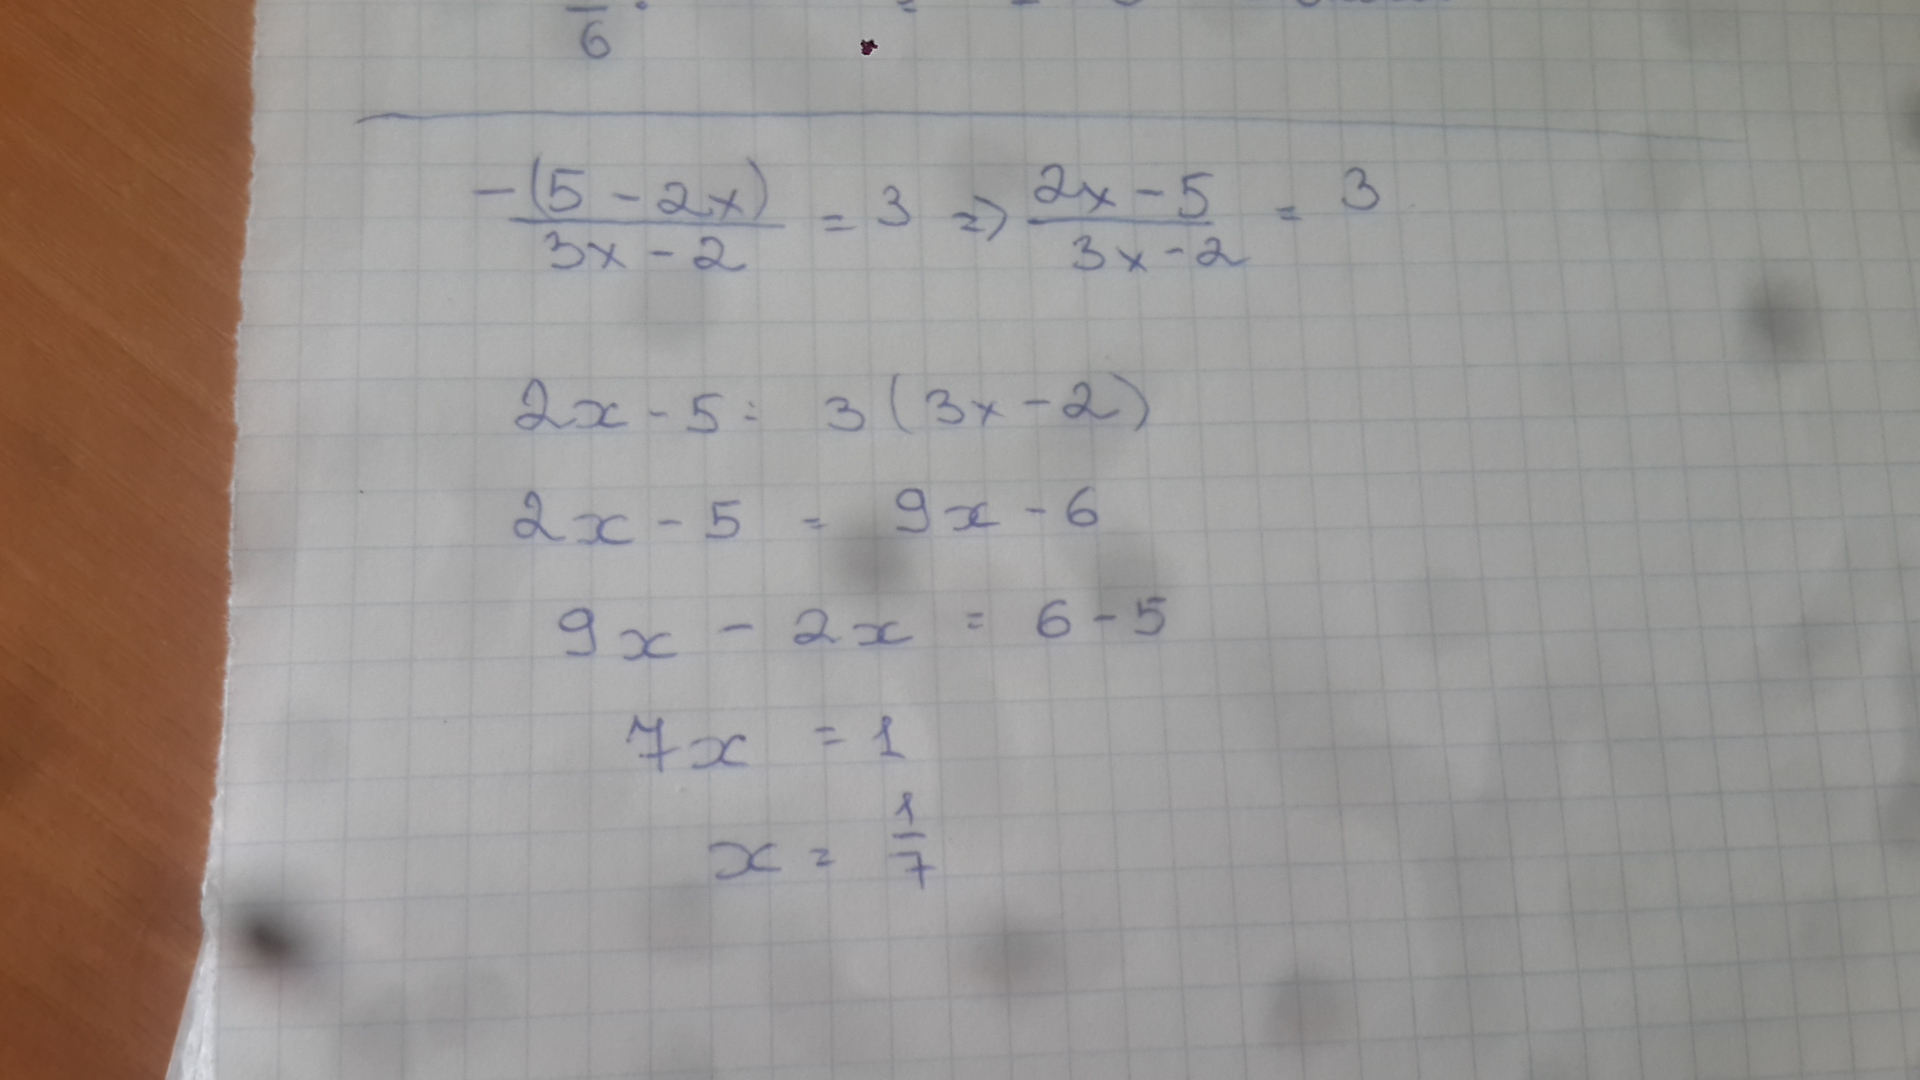 6
-(5 - 2x) / 3x - 2 = 3 => 2x - 5 / 3x - 2 = 3
2x - 5 = 3(3x - 2)
2x - 5 = 9x - 6
9x - 2x = 6 - 5
7x = 1
x = 1/7